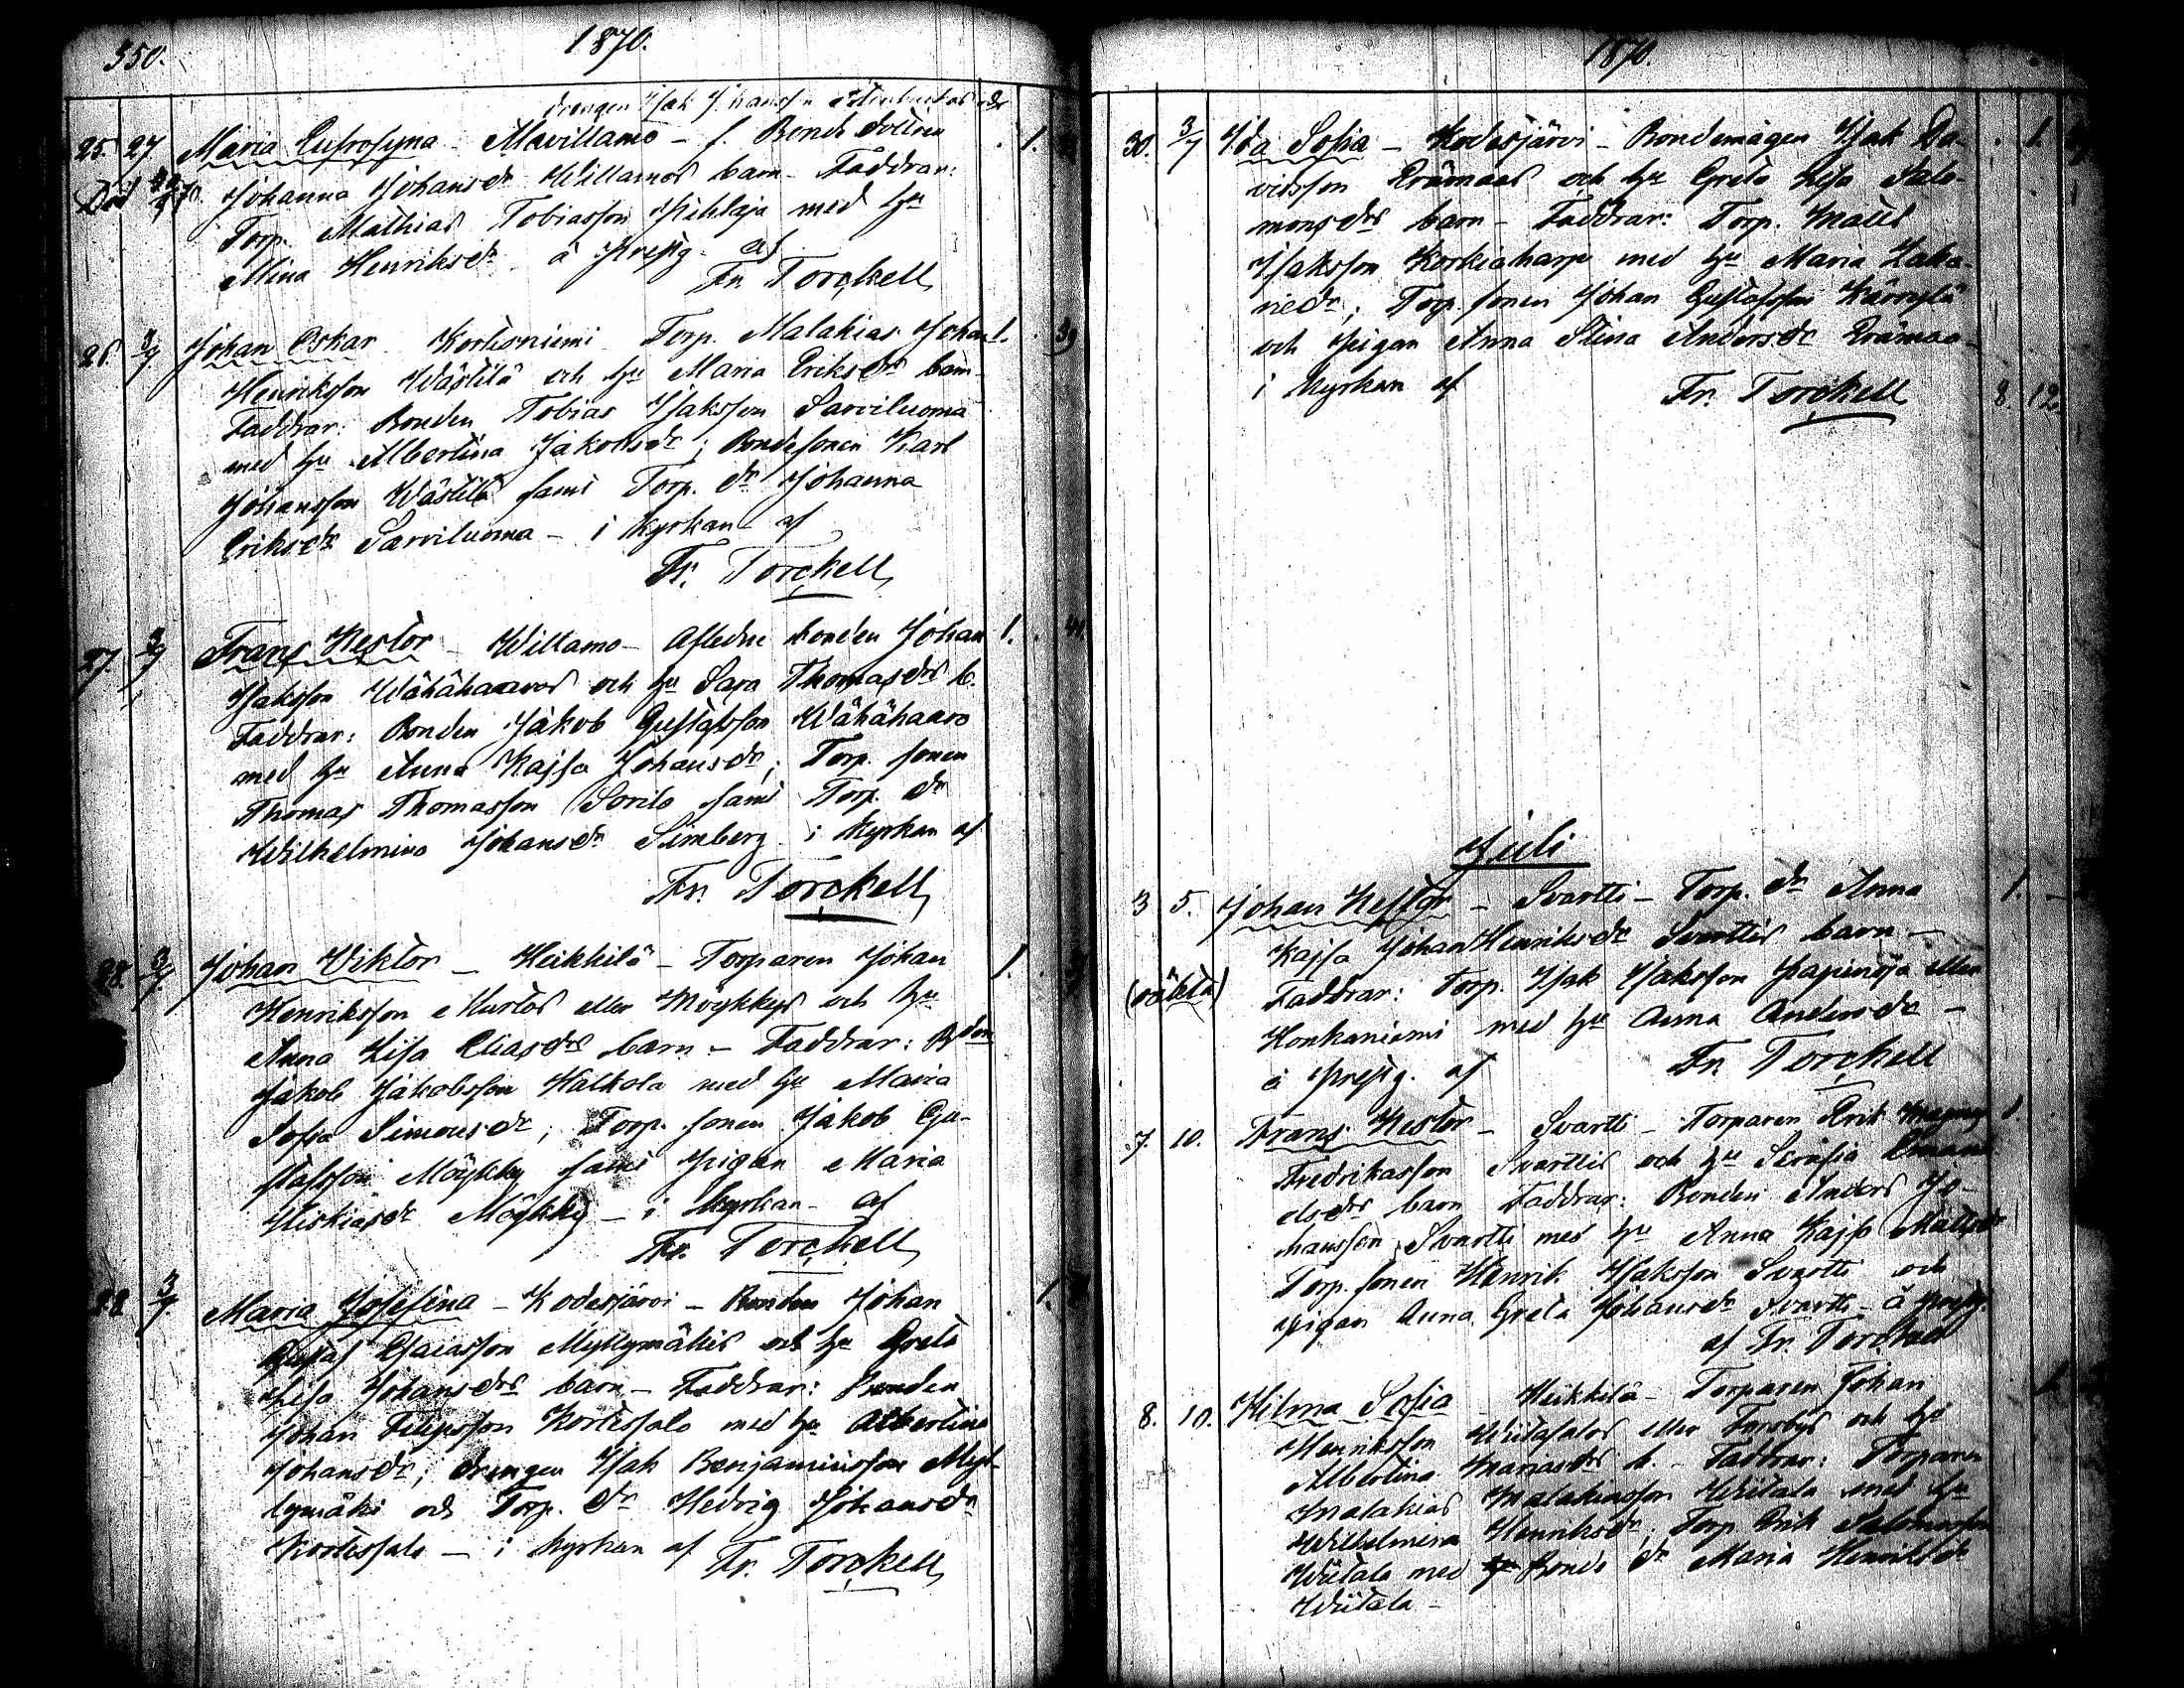 350. 1870.
drengen Isak Johansson
25. 27 Maria Eufrosyna - Mavillamo - f. Bonde dottren 1.
Död Johanna Johansdr Willamos barn - Faddrar:
Torp. Mathias Tobiasson Pihlaja med hu
Mina Henriksdr å Prestg. af
Fr. Torckell
26. 3/7 Johan Oskar Kortesniemi Torp. Malakias Johan 1. 39
Henriksson Wästilä och hu Maria Eriksdrs barn -
Faddrar: Bonden Tobias Isaksson Sarviluoma
med hu Albertina Jakobsdr; Bondesonen Karl
Johansson Wästilä samt Torp. dr Johanna
Eriksdr Sarviluoma - i kyrkan af
Fr. Torckell
27. 3/7 Frans Nestor - Willamo - Afledne bonden Johan 1. 41.
Isaksson Wähähaaros och hu Sara Thomasdrs b.
Faddrar: Bonden Jakob Gustafsson Wähähaaro
med hu Anna Kajsa Johansdr; Torp. sonen
Thomas Thomasson Sorila samt Torp. dr
Wilhelmina Johansdr Simberg i kyrkan af
Fr. Torckell
28. 3/7 Johan Viktor - Heikkilä - Torparen Johan 1.
Henriksson Murtos eller Möykkys och hu
Anna Lisa Eliasdrs barn - Faddrar: Bden
Jakob Jakobsson Halkola med hu Maria
Sofia Simonsdr; Torp. sonen Jakob Gu-
stafsson Möykky samt pigan Maria
Hiskiasdr Möykky - i kyrkan af
Fr. Torckell
3/7 Maria Josefina - Kodesjärvi - Bonden Johan 1.
Gustaf Esaiasson Myllymäkis och hu Greta
Lisa Johansdrs barn - Faddrar: Bonden
Johan Filipsson Kortessalo med hu Albertina
Johansdr; drengen Isak Benjaminsson Myl-
lymäki och Torp. dr Hedvig Johansdr
Kortessalo - i kyrkan af Fr. Torckell
1870.
30. 3/7 Ida Sofia - Kodesjärvi - Bondemågen Isak Da- 1.
vidsson Orämaas och hu Greta Lisa Salo-
monsdrs barn - Faddrar: Torp. Matts
Isaksson Korkiaharju med hu Maria Zaka-
riedr; Torp. sonen Johan Gustafsson
och pigan Anna Stina Andersdr
i kyrkan af Fr. Torckell 8. 12.
Juli
3 5. Johan Nestor - Svartti - Torp. dr Anna 1.
Kajsa Johan Henriksdr Svarttis barn -
(oäkta) Faddrar: Torp. Isak Isaksson eller
Honkaniemi med hu Anna Andersdr -
å Prestg. af Fr. Torckell
7. 10. Frans Nestor - Svartti - Torparen Erik Magnus 1.
Fredriksson Svarttis och hu Serafia Emanu-
elsdrs barn Faddrar: Bonden Anders Jo-
hansson Svartti med hu Anna Kajsa Mattsdr
Torp. sonen Henrik Isaksson Svartti och
pigan Anna Greta Johansdr Svartti - å Prestg.
af Fr. Torckell
8. 10. Hilma Sofia Heikkilä - Torparen Johan 1.
Henriksson Wiitasalos eller Forsbys och hu
Albertina Mariasdrs b. - Faddrar: Torparen
Malakias Malakiasson Wiitala med hu
Wilhelmina Henriksdr; Torp. Erik Salomonsson
Wiitala med hu Bonde dr Maria Henriksdr
Wiitala -